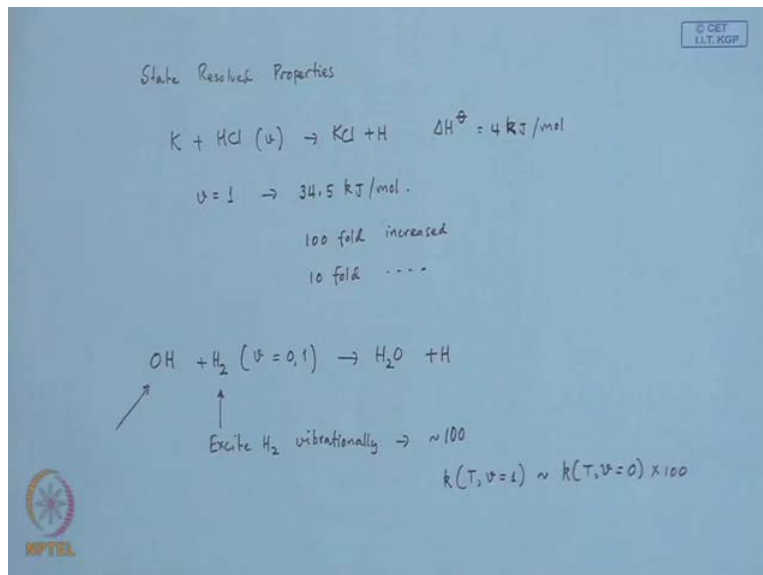 © CET
I.I.T. KGP
State Resolved Properties
K + HCl (v) → KCl + H ΔH^⊖ = 4 kJ/mol
v = 1 → 34.5 kJ/mol.
100 fold increased
10 fold ....
OH + H₂ (v = 0,1) → H₂O + H
Excite H₂ vibrationally → ~100
k(T, v=1) ~ k(T, v=0) × 100
NPTEL